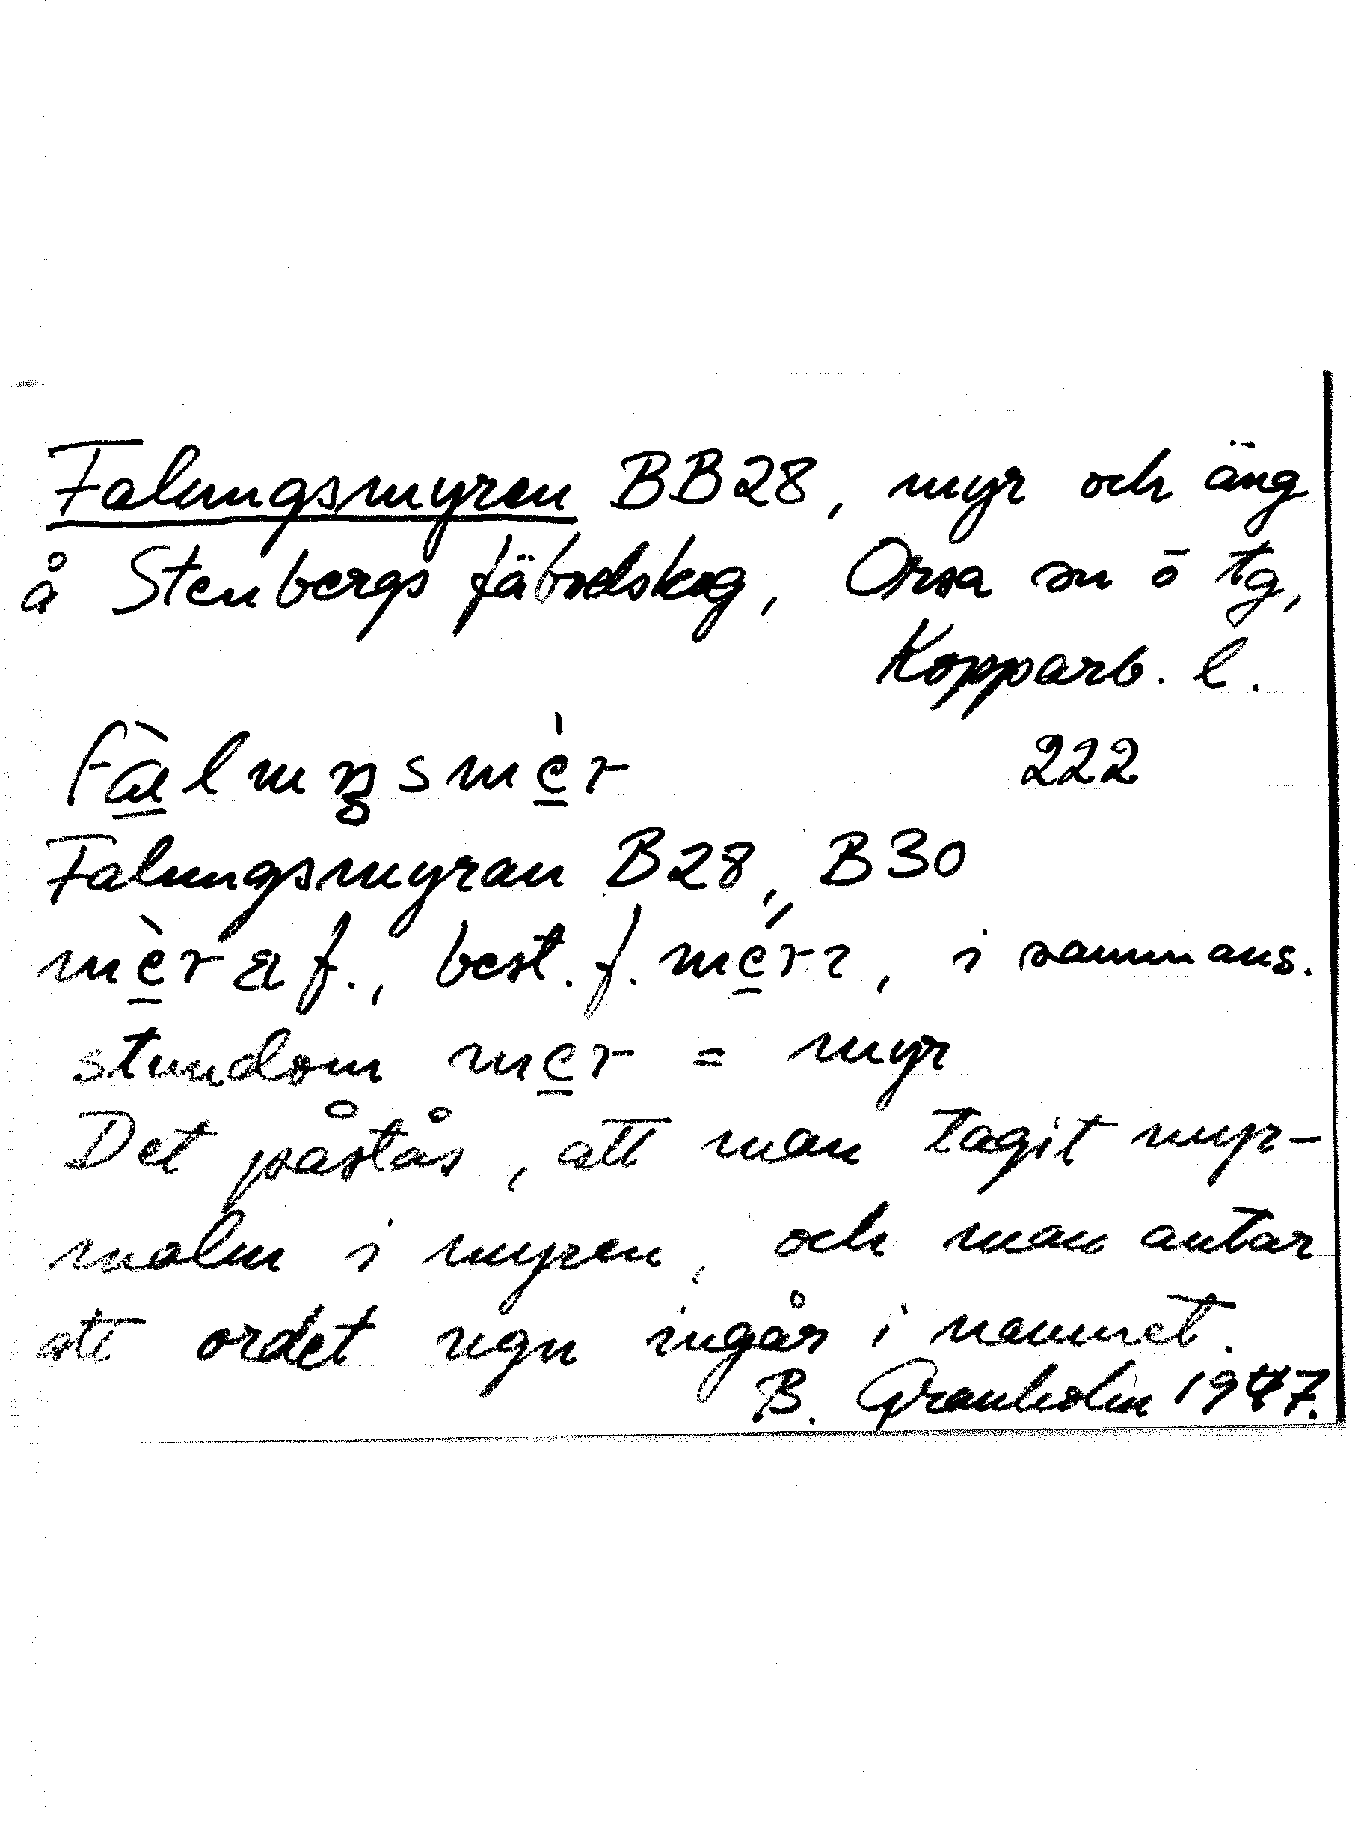 Falungsmyren BB28, myr och äng
å Stenbergs fäbodskog, Orsa sn ō tg,
Kopparb. l.
222
Falungsmyran B28, B30
f., best. f. i sammans.
stundom mer = myr
Det påstås, att man tagit myr-
malm i myren, och man antar
att ordet ugn ingår i namnet.
B. Granholm 1947.